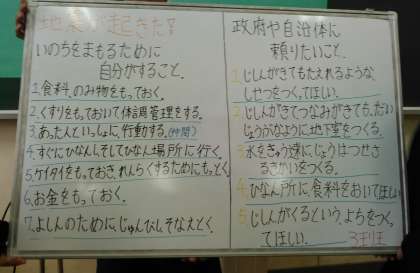 地震が起きた!!
いのちをまもるために
自分がすること。
1.食料、のみ物をもっておく。
2.くすりをもっておいて体調管理をする。
3.あったんといっしょに行動する。(仲間)
4.すぐにひなんし、そしてひなん場所に行く。
5.ケイタイをもっておき、れんらくするためにもっとく。
6.お金をもっておく。
7.よしんのためにじゅんびし、そなえとく。
政府や自治体に
頼りたいこと。
1.じしんがきてもたえれるような、
しせつをつくってほしい。
2.じしんがきてつなみがきても、だい
じょうぶなように地下室をつくる。
3.水をきゅう速にじょうはつせさ
るきかいをつくる。
4.ひなん所に食料をおいてほしい
5.じしんがくるという、よちをつく
ってほしい。
3ぱん